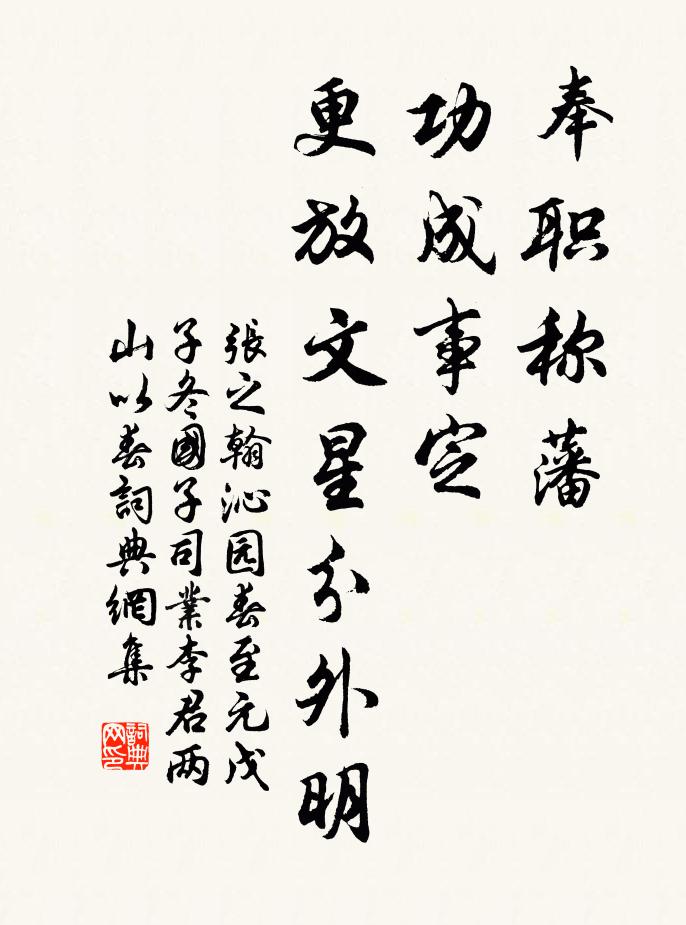 奉职称藩
功成事定
更放文星分外明
張之翰沁园春至元戊
子冬國子司業李君两
山以春詞典網集
詞典
网印